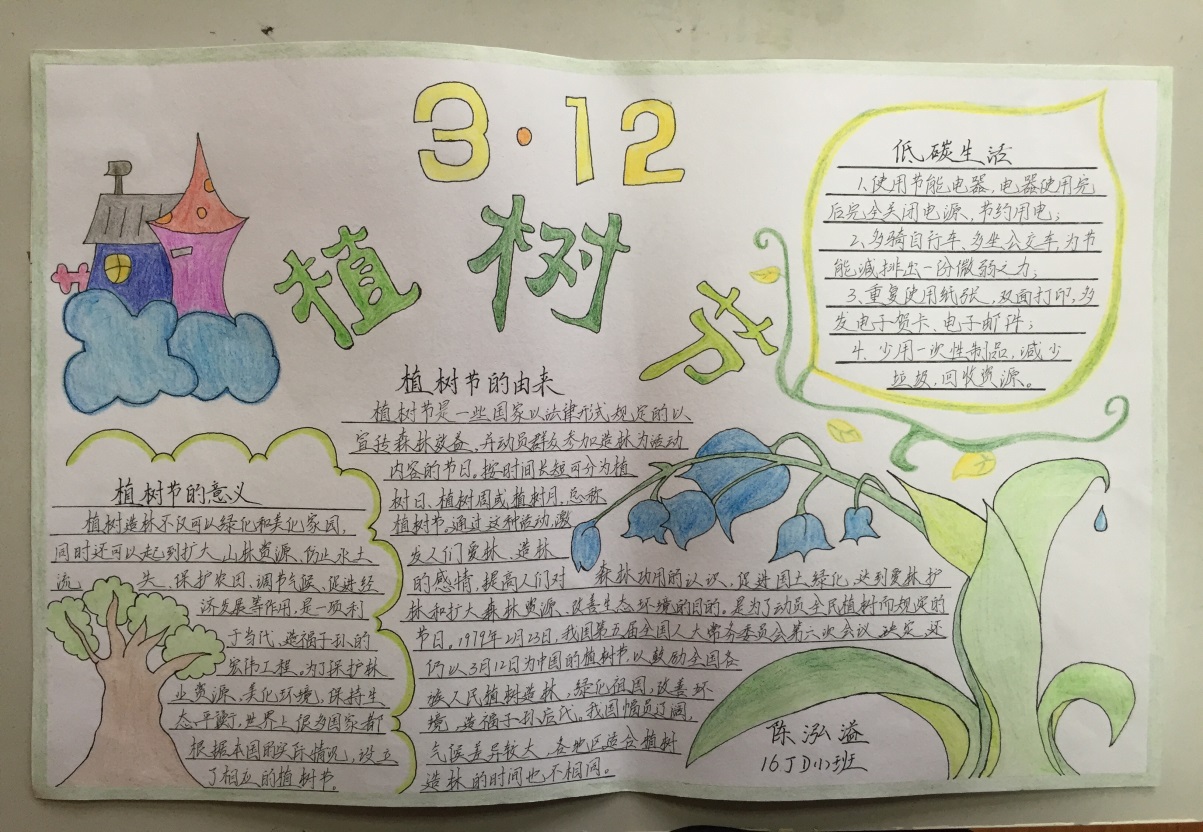 3·12
植树节
低碳生活
1、使用节能电器，电器使用完
后完全关闭电源、节约用电；
2、多骑自行车、多坐公交车，为节
能减排出一份微弱之力；
3、重复使用纸张，双面打印，多
发电子贺卡、电子邮件；
4、少用一次性制品，减少
垃圾，回收资源。
植树节的由来
植树节是一些国家以法律形式规定的以
宣传森林效益，并动员群众参加造林为活动
内容的节日。按时间长短可分为植
树日、植树周或植树月，总称
植树节。通过这种活动，激
发人们爱林、造林
的感情，提高人们对 森林功用的认识、促进国土绿化，达到爱林护
林和扩大森林资源、改善生态环境的目的。是为了动员全民植树而规定的
节日。1979年2月23日，我国第五届全国人大常务委员会第六次会议决定，还
仍以3月12日为中国的植树节，以鼓励全国各
族人民植树造林，绿化祖国，改善环
境，造福子孙后代。我国幅员辽阔，
气候差异较大，各地区适合植树
造林的时间也不相同。
植树节的意义
植树造林不仅可以绿化和美化家园，
同时还可以起到扩大山林资源、防止水土
流 失、保护农田、调节气候、促进经
济发展等作用，是一项利
于当代、造福子孙的
宏伟工程。为了保护林
业资源、美化环境，保持生
态平衡，世界上很多国家都
根据本国的实际情况，设立
了相应的植树节。
陈泓溢
16JD(1)班